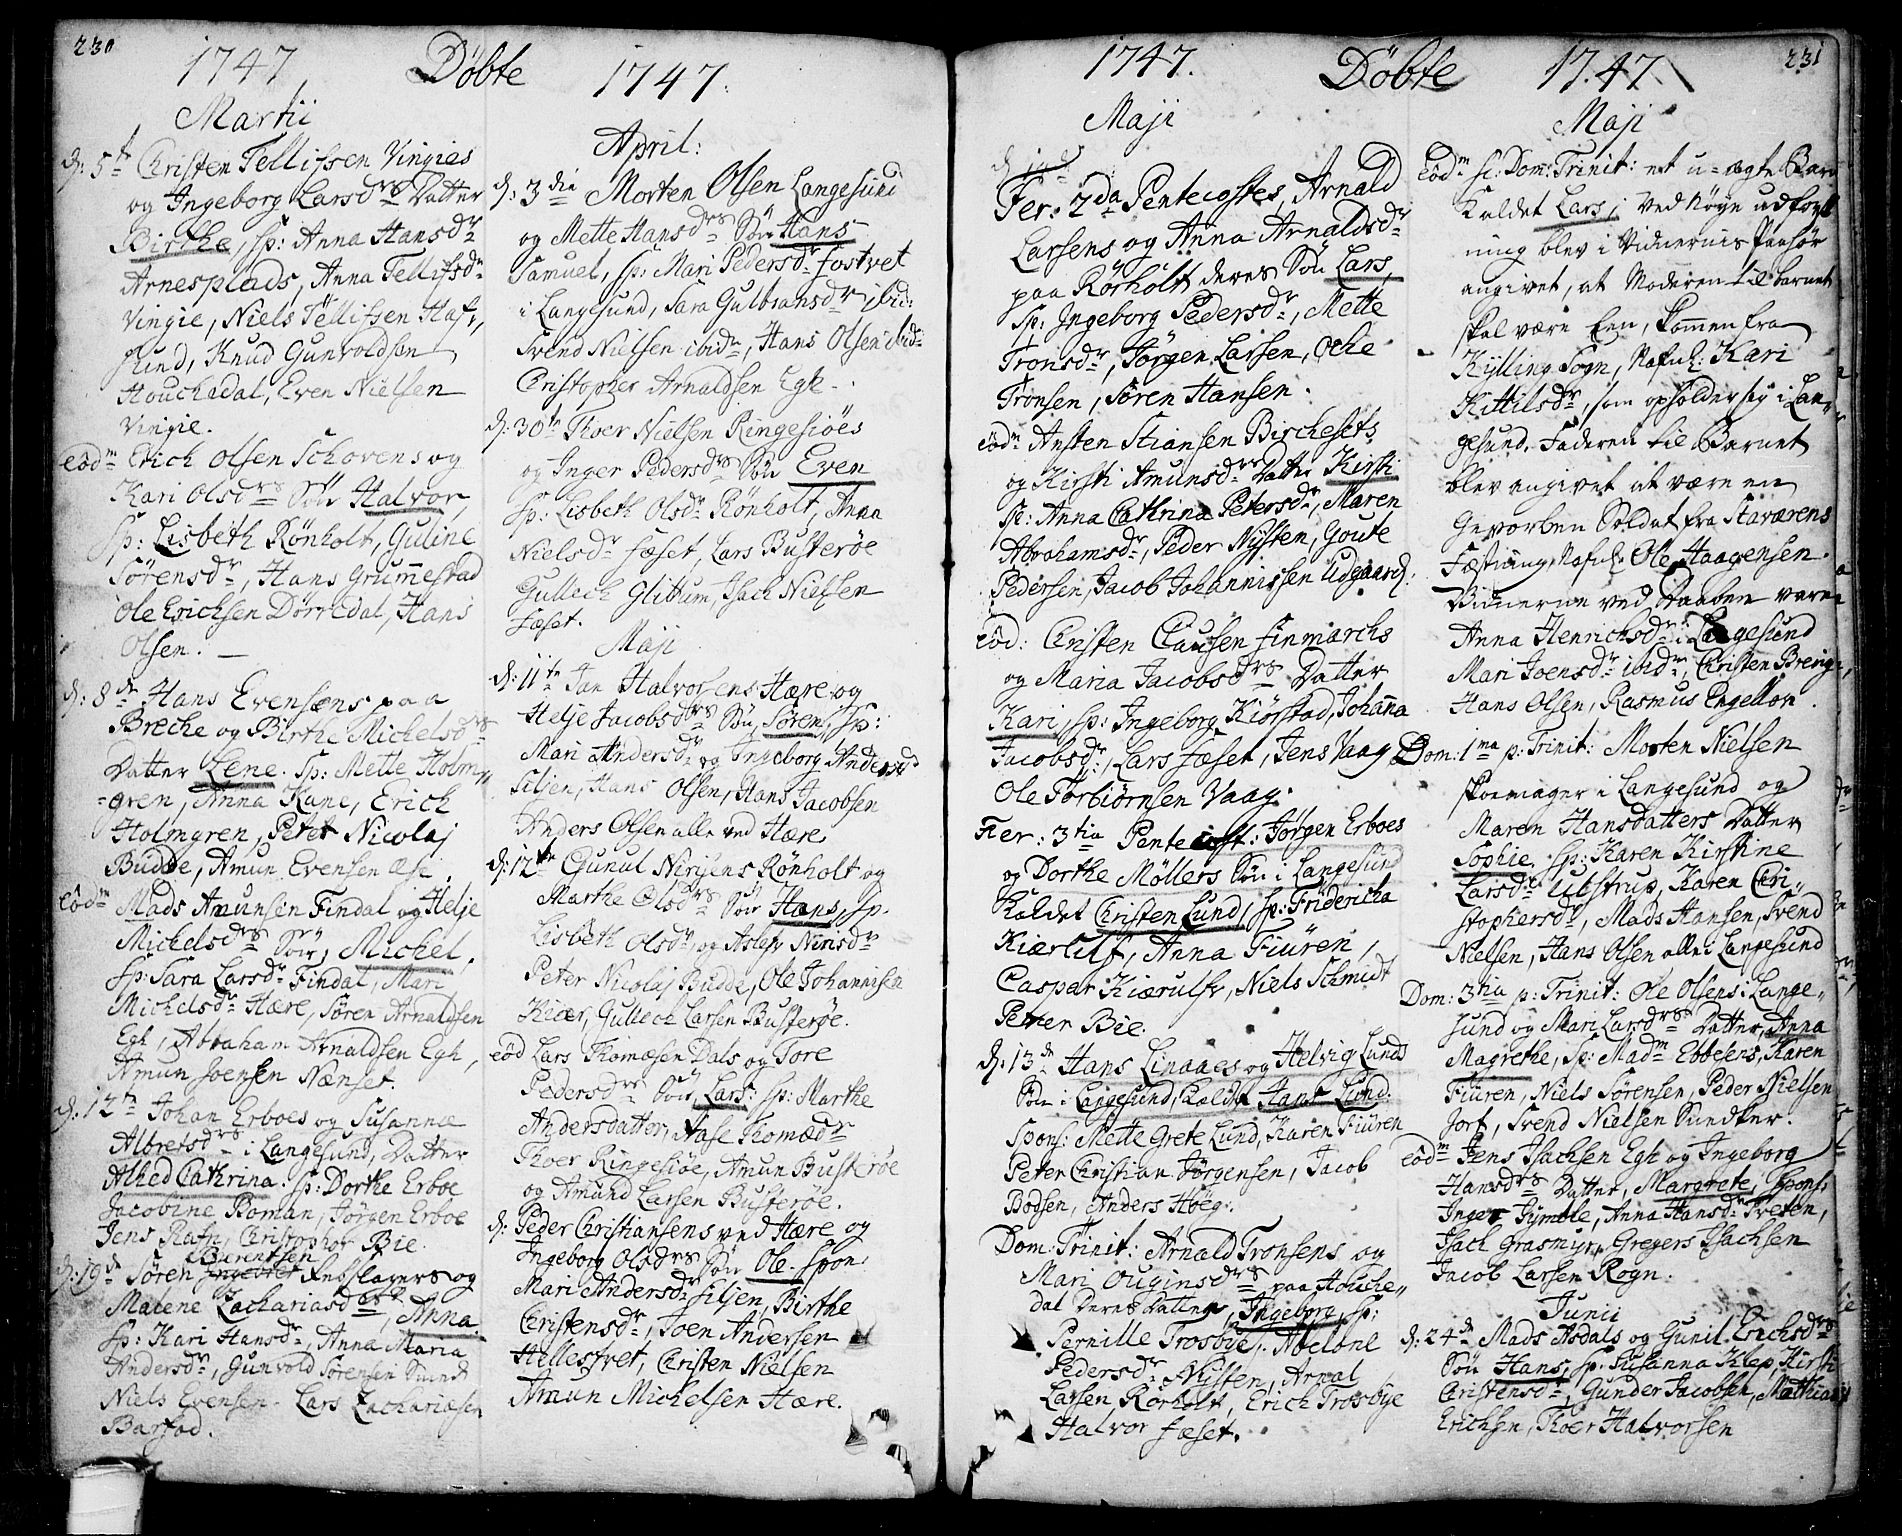 230
1747 Döbte 1747.
Martii
d: 5te Christen Tellifsen Vingies
og Ingeborg Larsdrs Datter
Birthe, sp: Anna Hansdr
Arnesplads, Anna Tellifsdr
Vingie, Niels Tellifsen Haf-
sund, Knud Gunvoldsen
Houchedal, Even Nielsen
Vingie.
eodm Erich Olsen Schovens og
Kari Olsdrs Sön Halvor,
sp: Lisbeth Rönholt, Guline
Sörensdr, Hans Grummestad
Ole Erichsen Dörredal, Hans
Olsen.
d: 8de Hans Evensens paa
Breche og Birthe Michelsdrs
Datter Lene. Sp: Mette Holm-
gren, Anna Kane, Erich
Holmgren, Peter Nicolaj
Budde, Amun Evensen
eodm Mads Amunsen Findal og Helje
Michelsdrs Sön, Michel,
Sp: Sara Larsdr Findal, Mari
Michelsdr Hære, Sören Arnaldsen
Egh, Abraham Arnaldsen Egh,
Amun Joensen Nænset.
d: 12te Johan Erboes og Susanna
Albretsdrs i Langesund, Datter
Alhed Cathrina. sp: Dorthe Erboe
Jacobine Roman, Jörgen Erboe
Jens Rafn, Christopher Bie.
Berentsen
d: 19de Sören Rebslagers og
Malene Zachariasd, Anna
Sp: Kari Hansdr, Anna Maria
Andersdr, Gunvold Sörensen
Niels Evensen. Lars Zachariæsen
Barstad.
April:
d: 3die Morten Olsen Langesund
og Mette Hansdrs Sön Hans
Samuel, sp: Mari Pedersdr Fostvet
i Langesund, Sara Gulbransdr ibid:
Svend Nielsen ibidm, Hans Olsen ibid:
Christopher Arnaldsen Egh.
d: 30te Thoer Nielsen Ringesiöes
og Inger Pedersdrs Sön Even
Sp: Lisbeth Olsdr Rönholt, Anna
Nielsdr Fæset, Lars Busteröe
Gullech Glittum, Isach Nielsen
Fæset.
Maji
d: 11te Jan Halvorsens Hære og
Helje Jacobsdrs Sön, Sören, Sp:
Mari Andersdr og Ingeborg Andersd
Siljen, Hans Olsen, Hans Jacobsen
Anders Olsen alle ved Hære
d: 12te Gunul Nirijens Rönholt og
Marthe Olsdrs Sön Hans, Sp.
Lisbeth Olsdr, og Aslef Ninsdr
Peter Nicolaj Budde, Ole Johannisen
Kiær, Gullech Larsen Busteröe.
eod Lars Thomæsen Dals og Tore
Pedersdrs Sön, Lars: sp: Marthe
Andersdatter, Aase Thomædr
Thoer Ringesiöe, Amun Busteröe
og Amund Larsen Busteröe.
d: Peder Christiansens ved Hære og
Ingeborg Olsdrs Sön Ole. Spon:
Mari Andersdr Siljen, Birthe
Christensdr, Joen Andersen
Hellestvet, Christen Nielsen
Amun Michelsen Hære.
1747. Döbte 1747
231
Maji
Fer: 2da Pentecostes, Arnald
Larsens og Anna Arnaldsdr
paa Rörholt deres Sön Lars,
Sp: Ingeborg Pedersdr, Mette
Tronsdr, Jörgen Larsen, Oche
Tronsen, Sören Hansen.
eodm Ansten Stiansen Birchesets
og Kirsti Amunsdrs Datter Kirsti
Sp: Anna Cathrina Petersdr, Maren
Abrahamsdr, Peder Nysten, Goute
Pedersen, Jacob Johannissen Udgaard:
eod: Christen Clausen Finmarchs
og Maria Jacobsdrs Datter
Kari, sp: Ingeborg Kiörstad, Johanna
Jacobsdr, Lars Fæset, Jens Vaag
Ole Torbiörnsen Vaag.
Fer: 3tia Pentecost: Jörgen Erboes
og Dorthe Möllers Sön i Langesund
kaldet Christen Lund, sp: Fridericha
Kiærulf, Anna Fiüren,
Casper Kiærulfv, Niels Schmidt
Peter Bie.
d: 13de Hans Linaaes og Helvig Lunds
Sön i Langesund, kaldet Hans Lund.
Spons: Mette Grete Lund, Karen Fiüren
Peter Christian Jörgensen, Jacob
Bodsen, Anders Höeg.
Dom: Trinit: Arnald Tronsens og
Mari Ouginsdrs paa Houche-
dal deres Datter, Ingeborg, sp:
Pernille Trosbye, Abelone
Pedersdr Nysten, Arnal
Larsen Rörholt, Erich Trosbye
Halvor Fæset.
Maji
Eodm sc: Dom: Trinit: et u-ægte Barn
kaldet Lars; ved nöye udforsk
ning blev i Vidnernis Paahör
angivet, at Moderen til barnet
skal være Een, kommen fra
Kylling Sogn, Nafnl: Kari
Kittilsdr, som opholder sig i Lan-
gesund. Faderen til Barnet
blev angivet at være en
Gevorben Soldat fra Staværens
Fæstning, Nafnl: Ole Haagensen.
Vidnerne ved Daaben vare
Anna Henrichsdr i Langesund
Mari Joensdr ibidm, Christen Breng
Hans Olsen, Rasmus Engelkon.
Dom: 1ma p: Trinit: Morten Nielsen
skomager i Langesund og
Maren Hansdatters Datter
Sophie, sp: Karen Kirstine
Larsdr Ulstrup, Karen Chri-
stophersdr, Mads Hansen, Svend
Nielsen, Hans Olsen alle i Langesund
Dom: 3tia p: Trinit: Ole Olsens i Lange-
sund og Mari Larsdrs Datter, Anna
Magrethe, Sp: Madm Ebbesens, Karen
Fiüren, Niels Sörensen, Peder Nielsen
Jorf, Svend Nielsen Sundker.
eodm Jens Isachsen Egh og Ingeborg
Hansdrs Datter, Margrete, Spons:
Inger Tymble, Anna Hansdr Tveten,
Isach Grasmyr, Gregers Isachsen
Jacob Larsen Rogn.
Junii
d: 24de Mads Asdals og Gunil Erichsdrs
Sön Hans, Sp: Susanna Klep, Kirsti
Christensdr, Gunder Jacobsen, Mathias
Erichsen, Thoer Halvorsen